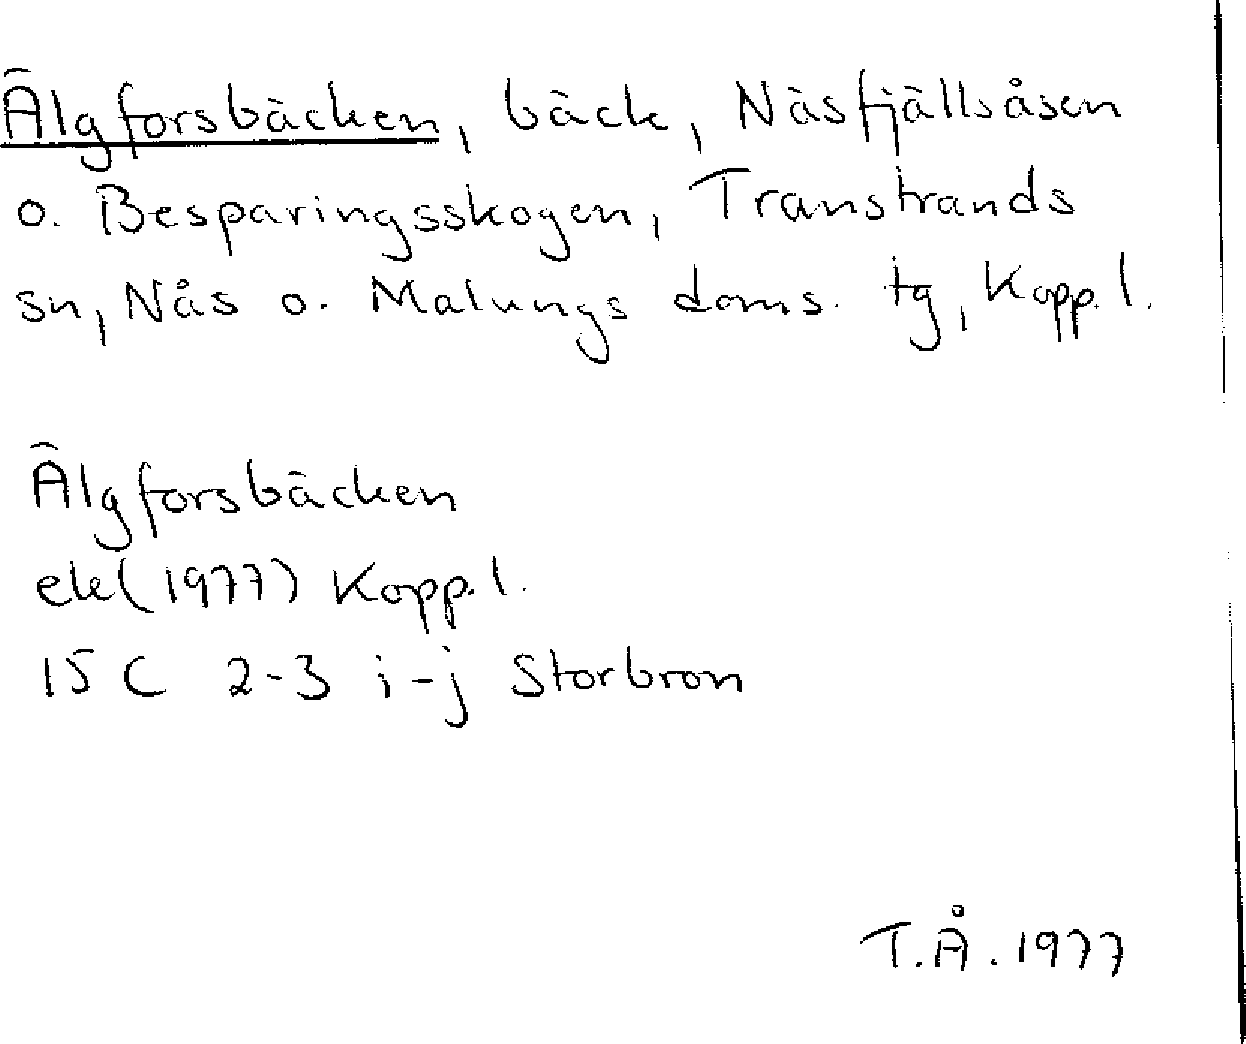 Älgforsbäcken, bäck, Näsfjällsåsen
o. Besparingsskogen, Transtrands
sn, Nås o. Malungs doms. tg, Kopp. l.
Älgforsbäcken
ek (1977) Kopp. l.
15 C 2-3 i-j Storbron
T.Å. 1977